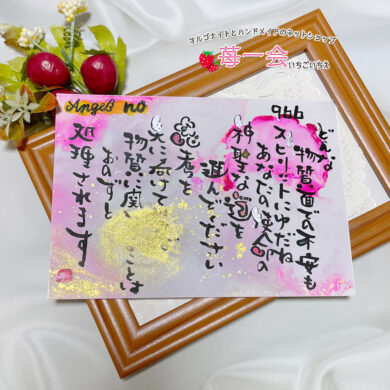 オルゴナイトとハンドメイドのネットショップ
苺一会
いちごいちえ
Angel no 966
どんな
物質面での不安も
スピリットにゆだね
あなたの
神聖な道を
選んでください
思考を
天に向けて
物質に関することは
おのずと
処理されます